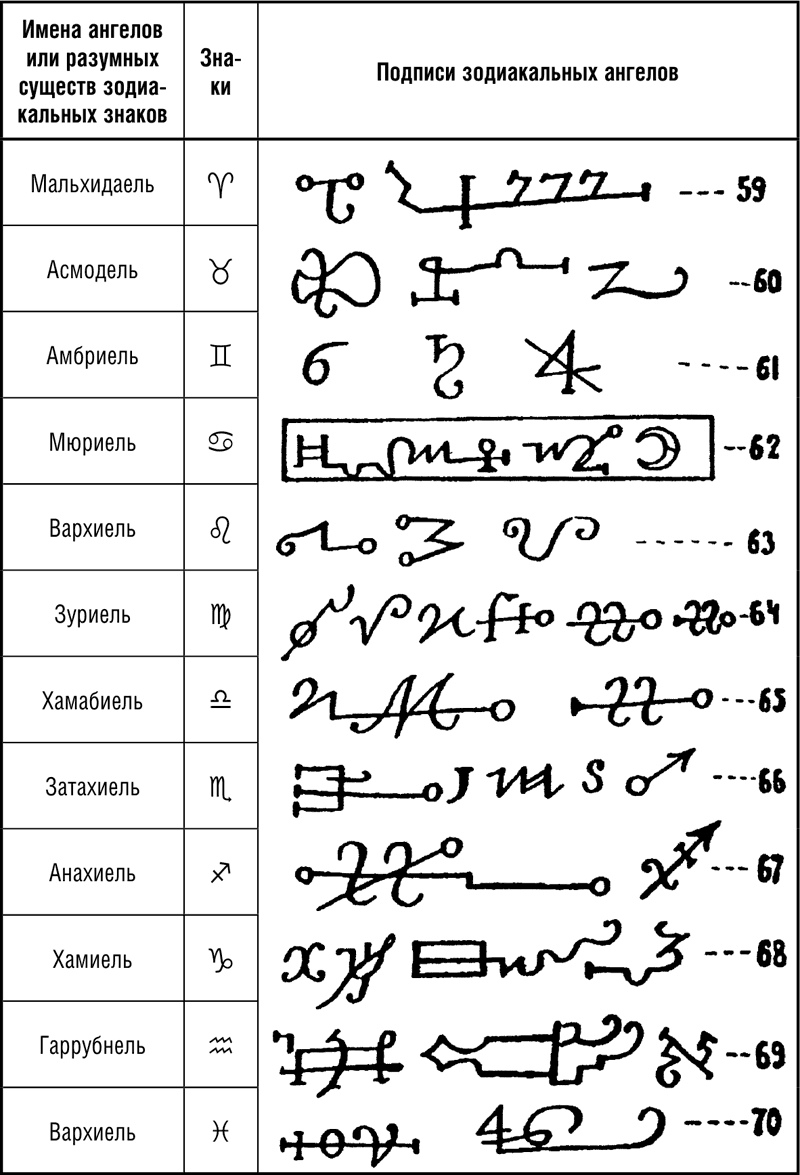 Имена ангелов
или разумных
существ зодиа-
кальных знаков
Зна-
ки
Подписи зодиакальных ангелов
Мальхидаель ♈ 59
Асмодель ♉ 60
Амбриель ♊ 61
Мюриель ♋ 62
Вархиель ♌ 63
Зуриель ♍ 64
Хамабиель ♎ 65
Затахиель ♏ 66
Анахиель ♐ 67
Хамиель ♑ 68
Гаррубнель ♒ 69
Вархиель ♓ 70